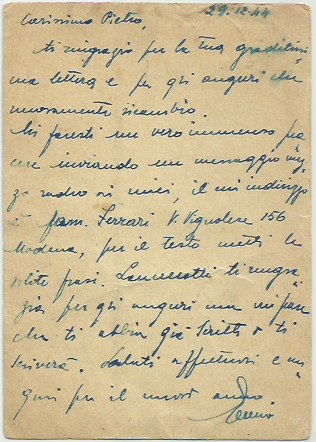 29.12.44
Carissimo Pietro,
ti ringrazio per la tua graditissi
ma lettera e per gli auguri che
nuovamente ricambio.
Mi faresti un vero immenso pia
cere inviando un messaggio mez
zo radio ai miei, il cui indirizzo
è fam. Ferrari V. Vignolese 156
Modena, per il testo metti le
solite frasi. Lancellotti ti ringra
zia per gli auguri ma mi pare
che ti abbia già scritto o ti
scriverà. Saluti affettuosi e au
guri per il nuovo anno